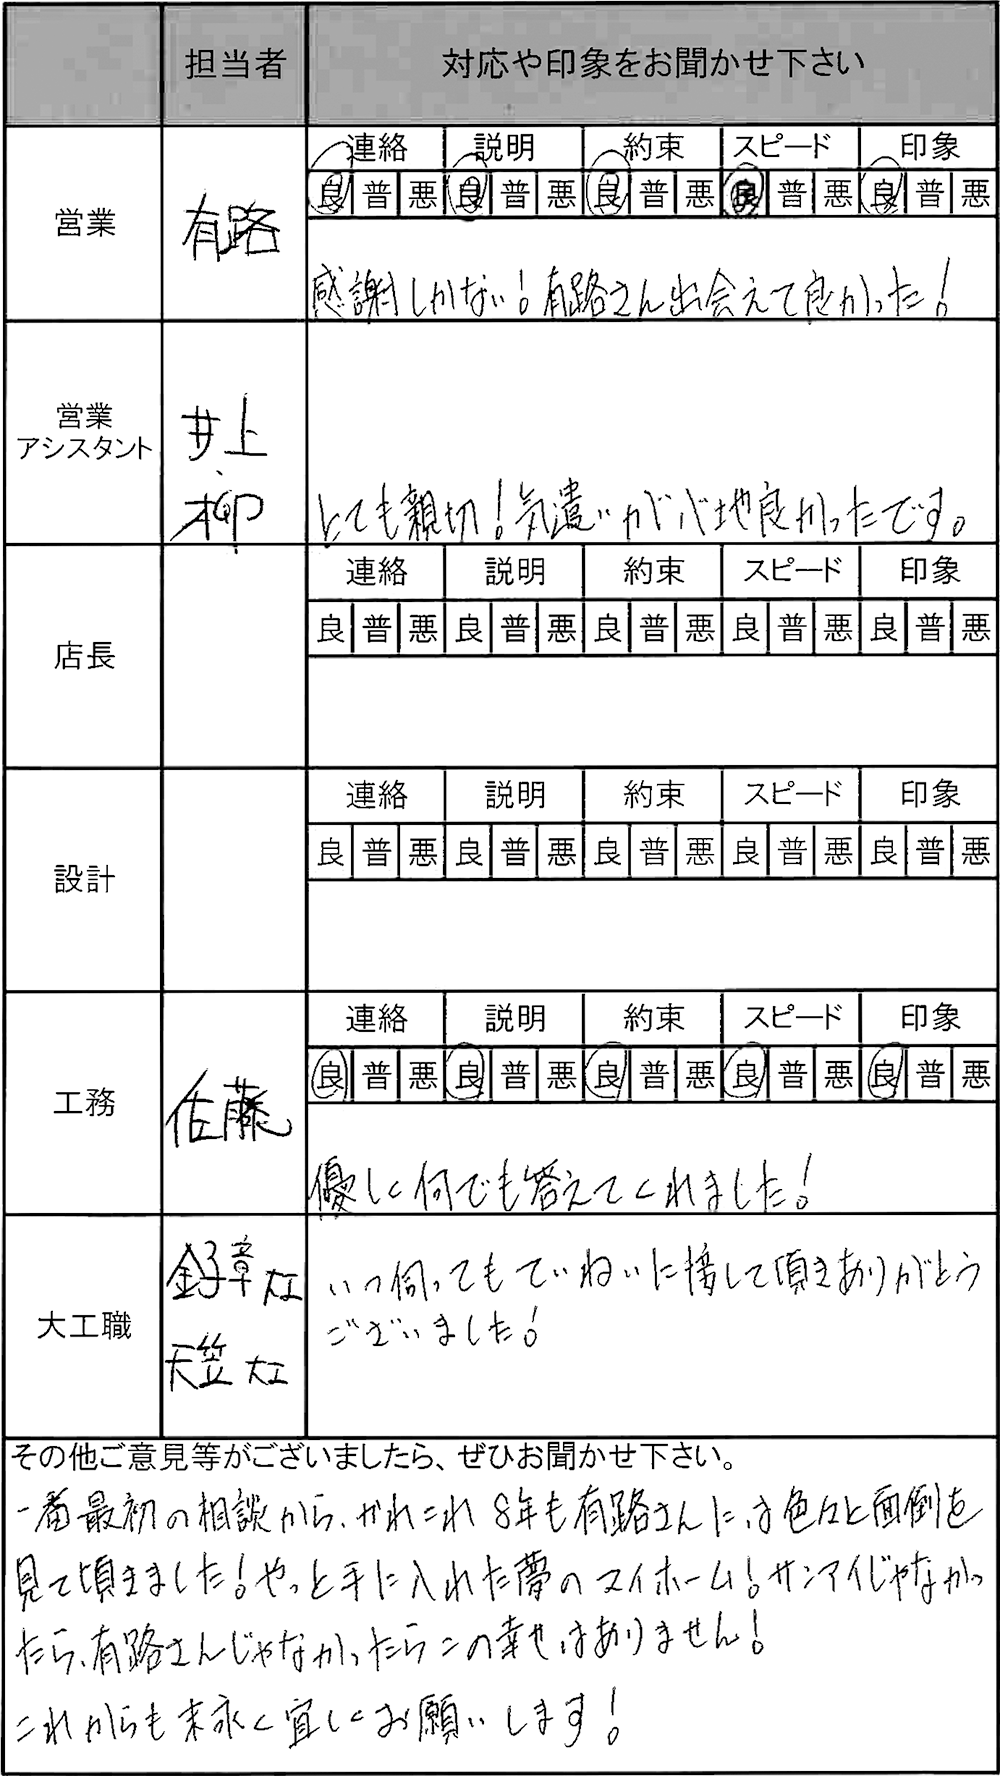 担当者 対応や印象をお聞かせ下さい
連絡 説明 約束 スピード 印象
良 普 悪 良 普 悪 良 普 悪 良 普 悪 良 普 悪
営業 有路
感謝しかない!有路さん出会えて良かった!
営業
アシスタント
井上
柳
とても親切!気遣いが心地良かったです。
連絡 説明 約束 スピード 印象
良 普 悪 良 普 悪 良 普 悪 良 普 悪 良 普 悪
店長
連絡 説明 約束 スピード 印象
良 普 悪 良 普 悪 良 普 悪 良 普 悪 良 普 悪
設計
連絡 説明 約束 スピード 印象
良 普 悪 良 普 悪 良 普 悪 良 普 悪 良 普 悪
工務 佐藤
優しく何でも答えてくれました!
大工職
金子章大工
天笠大工
いつ伺ってもていねいに接して頂きありがとう
ございました!
その他ご意見等がございましたら、ぜひお聞かせ下さい。
一番最初の相談から、かれこれ8年も有路さんには色々と面倒を
見て頂きました!やっと手に入れた夢のマイホーム!サンアイじゃなかっ
たら、有路さんじゃなかったらこの幸せはありません!
これからも末永く宜しくお願いします!